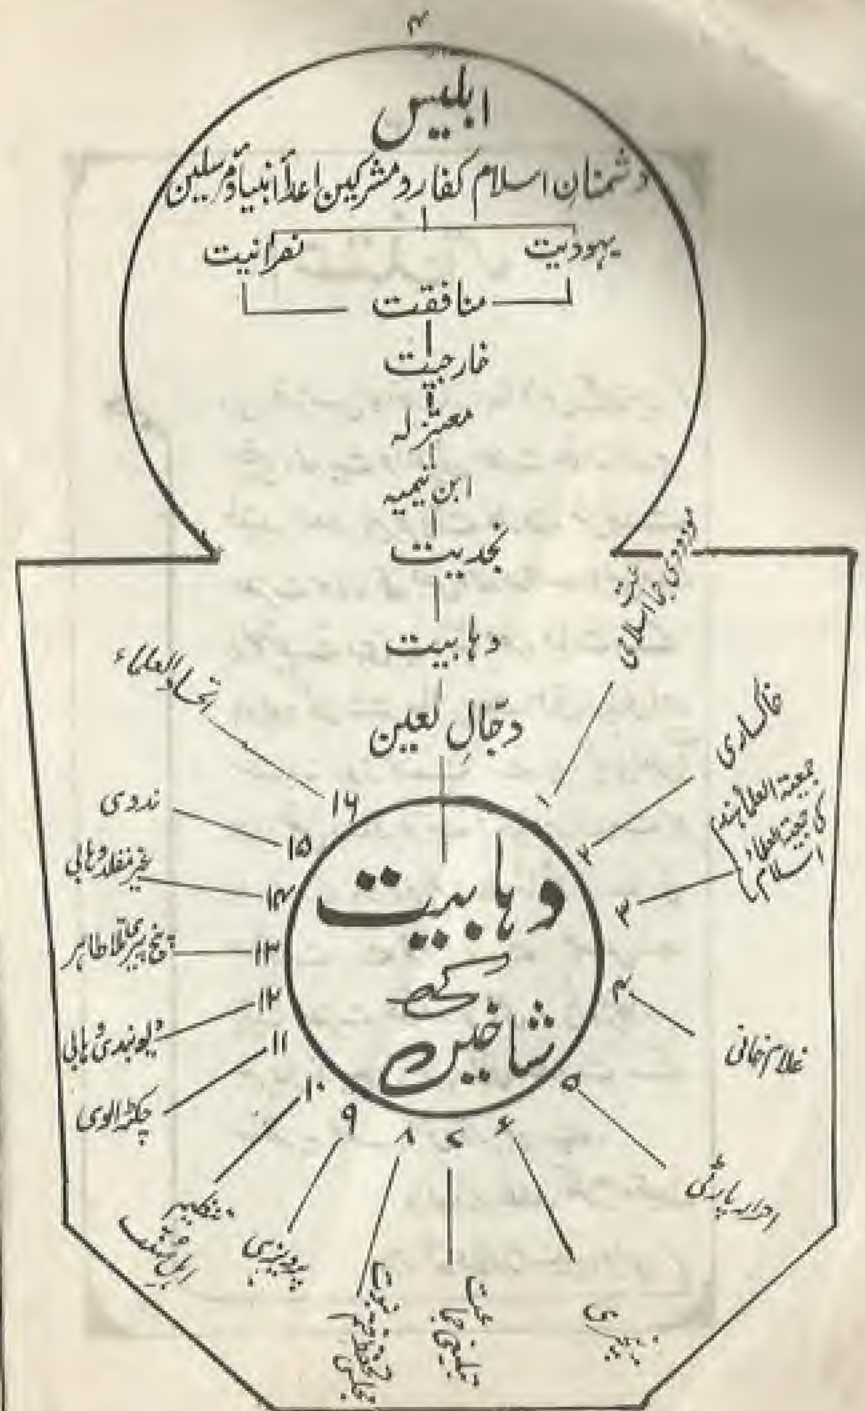 ۴
ابلیس
دشمنانِ اسلام کفار و مشرکین اعدأ انبیأ و مرسلین
یہودیت
نصرانیت
منافقت
خارجیت
معتزلہ
ابن تیمیہ
نجدیت
وہابیت
دجّالِ لعین
وہابیت
کی
شاخیں
۱ مودودی جماعت اسلامی
۲ خاکساری
۳ جمعیۃ العلمأ ہند
کی جمعیۃ العلمأ
اسلام
۴ غلام خانی
۵ احرار پارٹی
۶ نیچری
۷ تبلیغی جماعت
۸ مجلس تحفظ ختم نبوت
۹ پرویزی
۱۰ تنظیم
اہل حدیث
۱۱ چکڑالوی
۱۲ دیوبندی وہابی
۱۳ پنج پیری ملا طاہر
۱۴ غیر مقلد وہابی
۱۵ ندوی
۱۶ اتحاد العلماء